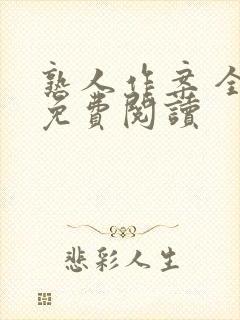 熟人作案全
免費閱讀
悲彩人生